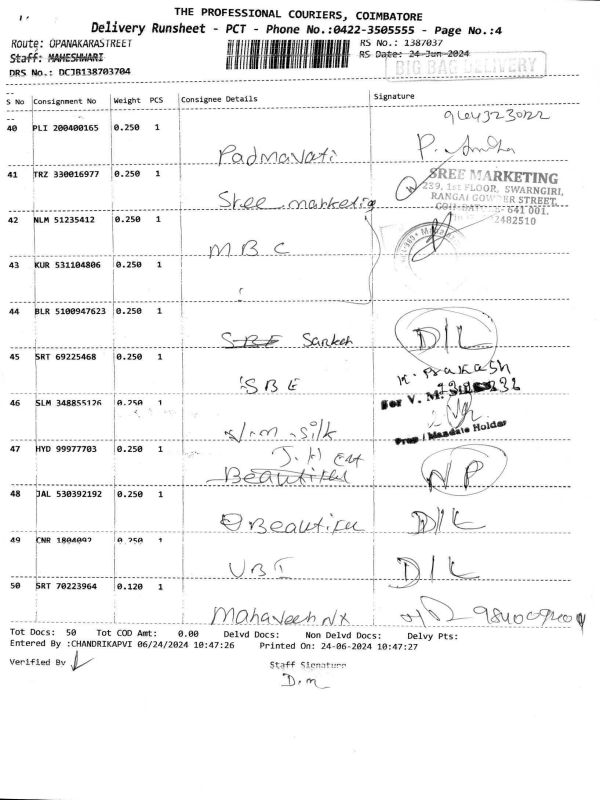 THE PROFESSIONAL COURIERS, COIMBATORE
Delivery Runsheet - PCT - Phone No.:0422-3505555 - Page No.:4
Route: OPANAKARASTREET RS No.: 1387037
Staff: MAHESHWARI RS Date: 24-Jun-2024
BIG BAG DELIVERY
DRS No.: DCJB138703704
S No Consignment No Weight PCS Consignee Details Signature
9643230122
40 PLI 200400165 0.250 1
Padmavati P.
41 TRZ 330016977 0.250 1
SREE MARKETING
239, 1st FLOOR, SWARNGIRI,
RANGAI GOWDER STREET,
641 001.
2482510
Sree marketig
42 NLM 51235412 0.250 1
M B C
43 KUR 531104806 0.250 1
44 BLR 5100947623 0.250 1
SBE Sankeh D/L
45 SRT 69225468 0.250 1
K. Prakash
SBE
For V. M.
46 SLM 348855126 0.250 1
V.m. silk
Prop / Mandate Holder
47 HYD 99977703 0.250 1
J. H Eat
Beautiful NP
48 JAL 530392192 0.250 1
Beautiful D/L
49 CNR 1804092 0.250 1
UBI D/L
50 SRT 70223964 0.120 1
Mahaveeh NX
Tot Docs: 50 Tot COD Amt: 0.00 Delvd Docs: Non Delvd Docs: Delvy Pts:
Entered By :CHANDRIKAPVI 06/24/2024 10:47:26 Printed On: 24-06-2024 10:47:27
Verified By Staff Signature
D.m